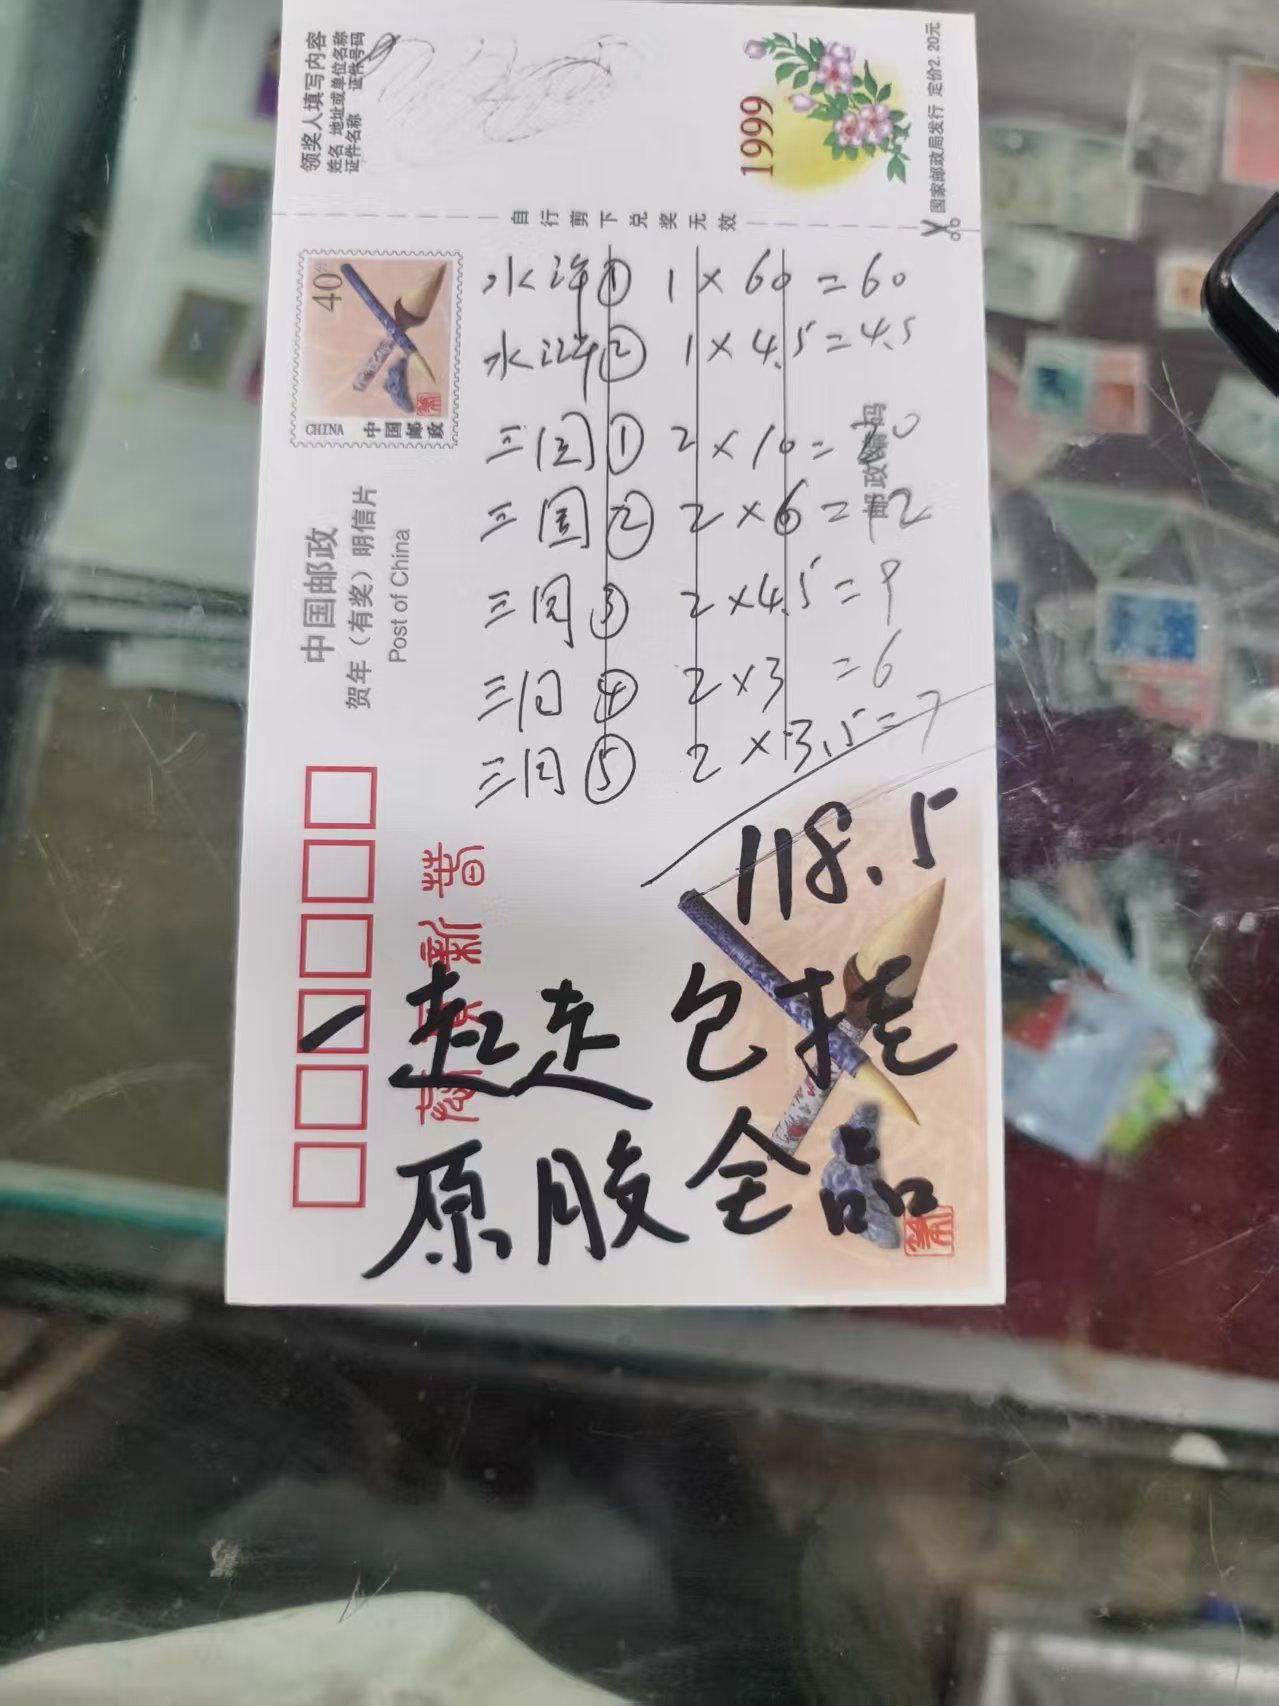 领奖人填写内容
姓名 地址或单位名称
证件名称 证件号码
1999
国家邮政局发行 定价2.20元
自行剪下兑奖无效
40分
CHINA 中国邮政
中国邮政
贺年（有奖）明信片
Post of China
邮政编码
水浒① 1×60=60
水浒② 1×4.5=4.5
三国① 2×10=20
三国② 2×6=12
三国③ 2×4.5=9
三国④ 2×3=6
三国⑤ 2×3.5=7
118.5
起走 包挂
原胶全品